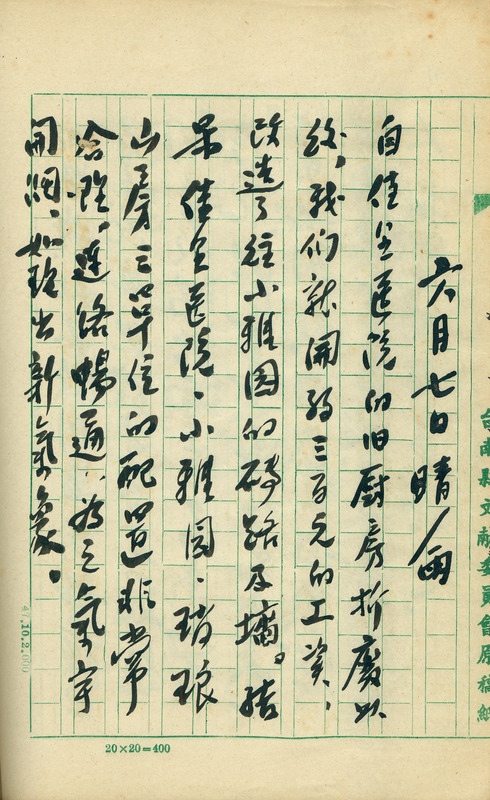 台南縣文獻委員會原稿紙
六月七日 晴/雨
自佳里医院的旧厨房拆廢以
後,我们就開約三百元的工資、
改造了往小雅園的磚路及墻。結
果佳里医院、小雅園、琑琅
山房三單位的配置非常
合理,連絡暢通,為之氣宇
開濶、如現出新氣象。
47.10.2.000
20×20=400